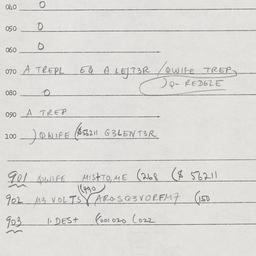 040 0
050 0
060 0
070 A TREPL EQ A LEJT3R /QWIFE TREP,
)Q- REDGLE
080 0
090 A TREP
100 )QWIFE ($5211 G3LENT3R
901 QWIFE MISTOME (268 ($ 56211
(990)
902 M3 VOLTS AROSG3VOREM7 (150
903 1. DEST (001020 (022